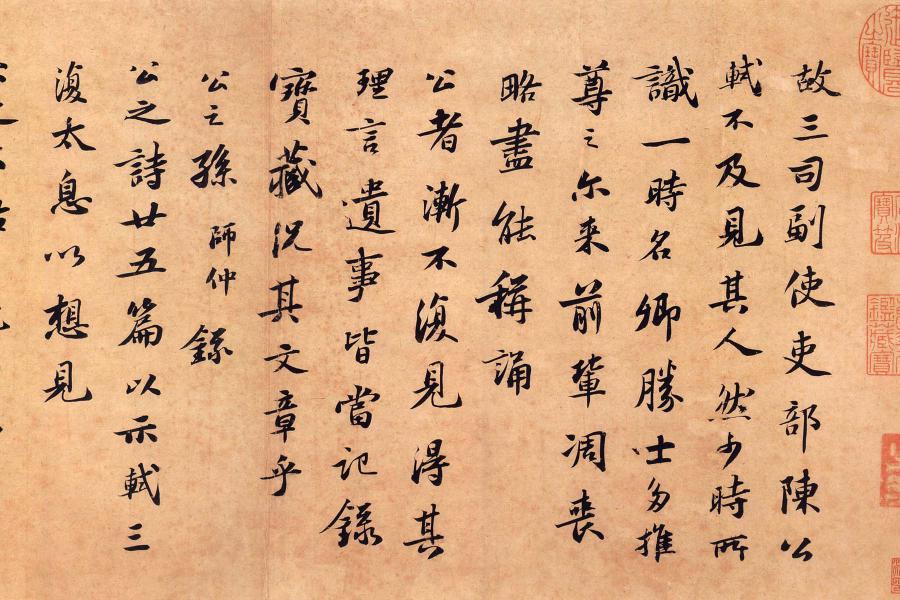 故三司副使吏部陳公
軾不及見其人然少時所
識一時名卿勝士多推
尊之尓来前輩凋喪
略盡能稱誦
公者漸不復見得其
理言遺事皆當記錄
寶藏況其文章乎
公之孫師仲錄
公之詩廿五篇以示軾三
復太息以想見